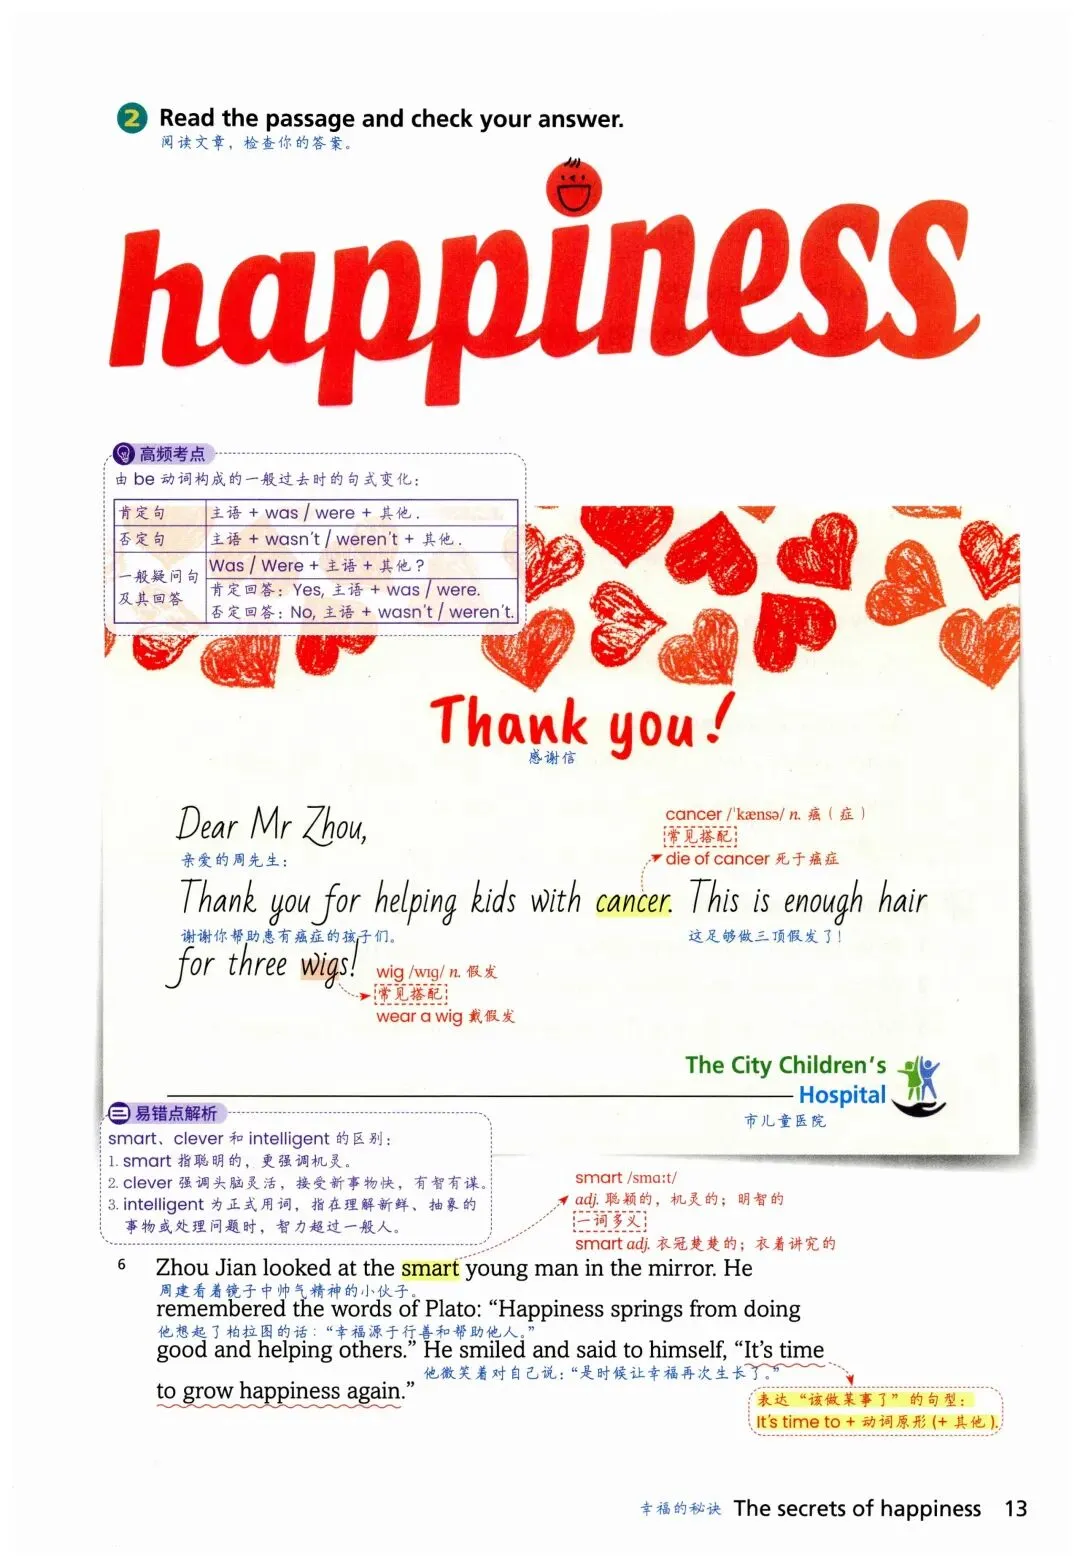 2 Read the passage and check your answer.
阅读文章，检查你的答案。
happiness
高频考点
由 be 动词构成的一般过去时的句式变化：
肯定句 主语 + was / were + 其他.
否定句 主语 + wasn't / weren't + 其他.
一般疑问句及其回答 Was / Were + 主语 + 其他？
肯定回答：Yes, 主语 + was / were.
否定回答：No, 主语 + wasn't / weren't.
Thank you!
感谢信
Dear Mr Zhou,
亲爱的周先生：
cancer /ˈkænsə/ n. 癌（症）
常见搭配
die of cancer 死于癌症
Thank you for helping kids with cancer. This is enough hair
谢谢你帮助患有癌症的孩子们。 这足够做三顶假发了！
for three wigs!
wig /wɪɡ/ n. 假发
常见搭配
wear a wig 戴假发
The City Children's
Hospital
市儿童医院
易错点解析
smart、clever 和 intelligent 的区别：
1. smart 指聪明的，更强调机灵。
2. clever 强调头脑灵活，接受新事物快，有智有谋。
3. intelligent 为正式用词，指在理解新鲜、抽象的
事物或处理问题时，智力超过一般人。
smart /smɑːt/
adj. 聪颖的，机灵的；明智的
一词多义
smart adj. 衣冠楚楚的；衣着讲究的
6 Zhou Jian looked at the smart young man in the mirror. He
周建看着镜子中帅气精神的小伙子。
remembered the words of Plato: “Happiness springs from doing
他想起了柏拉图的话：“幸福源于行善和帮助他人。”
good and helping others.” He smiled and said to himself, “It's time
他微笑着对自己说：“是时候让幸福再次生长了。”
to grow happiness again.”
表达“该做某事了”的句型：
It's time to + 动词原形 (+ 其他).
幸福的秘诀 The secrets of happiness 13